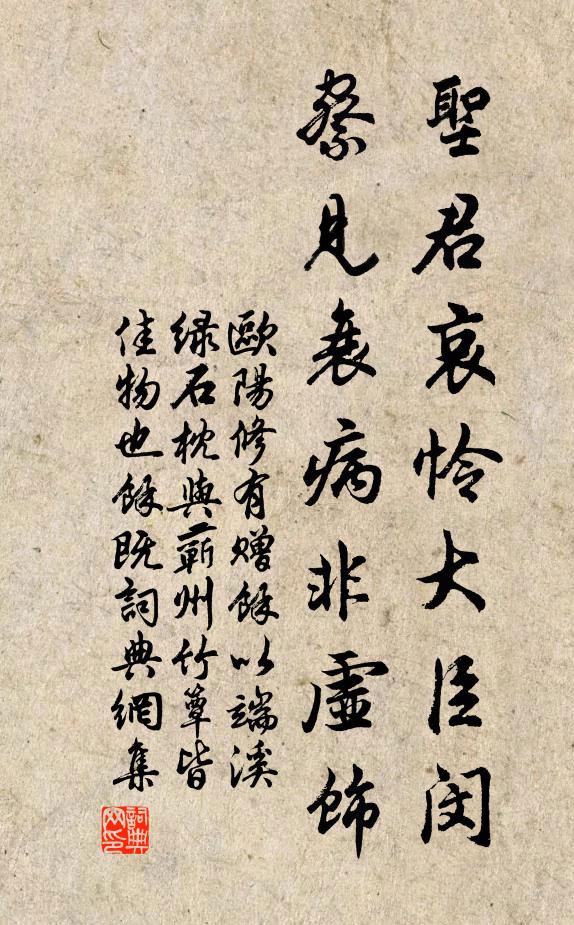 聖君哀怜大臣閔
察見衰病非虛飾
歐陽修有贈餘以端溪
緑石枕與蘄州竹簟皆
佳物也餘既詞典網集
詞典
网印